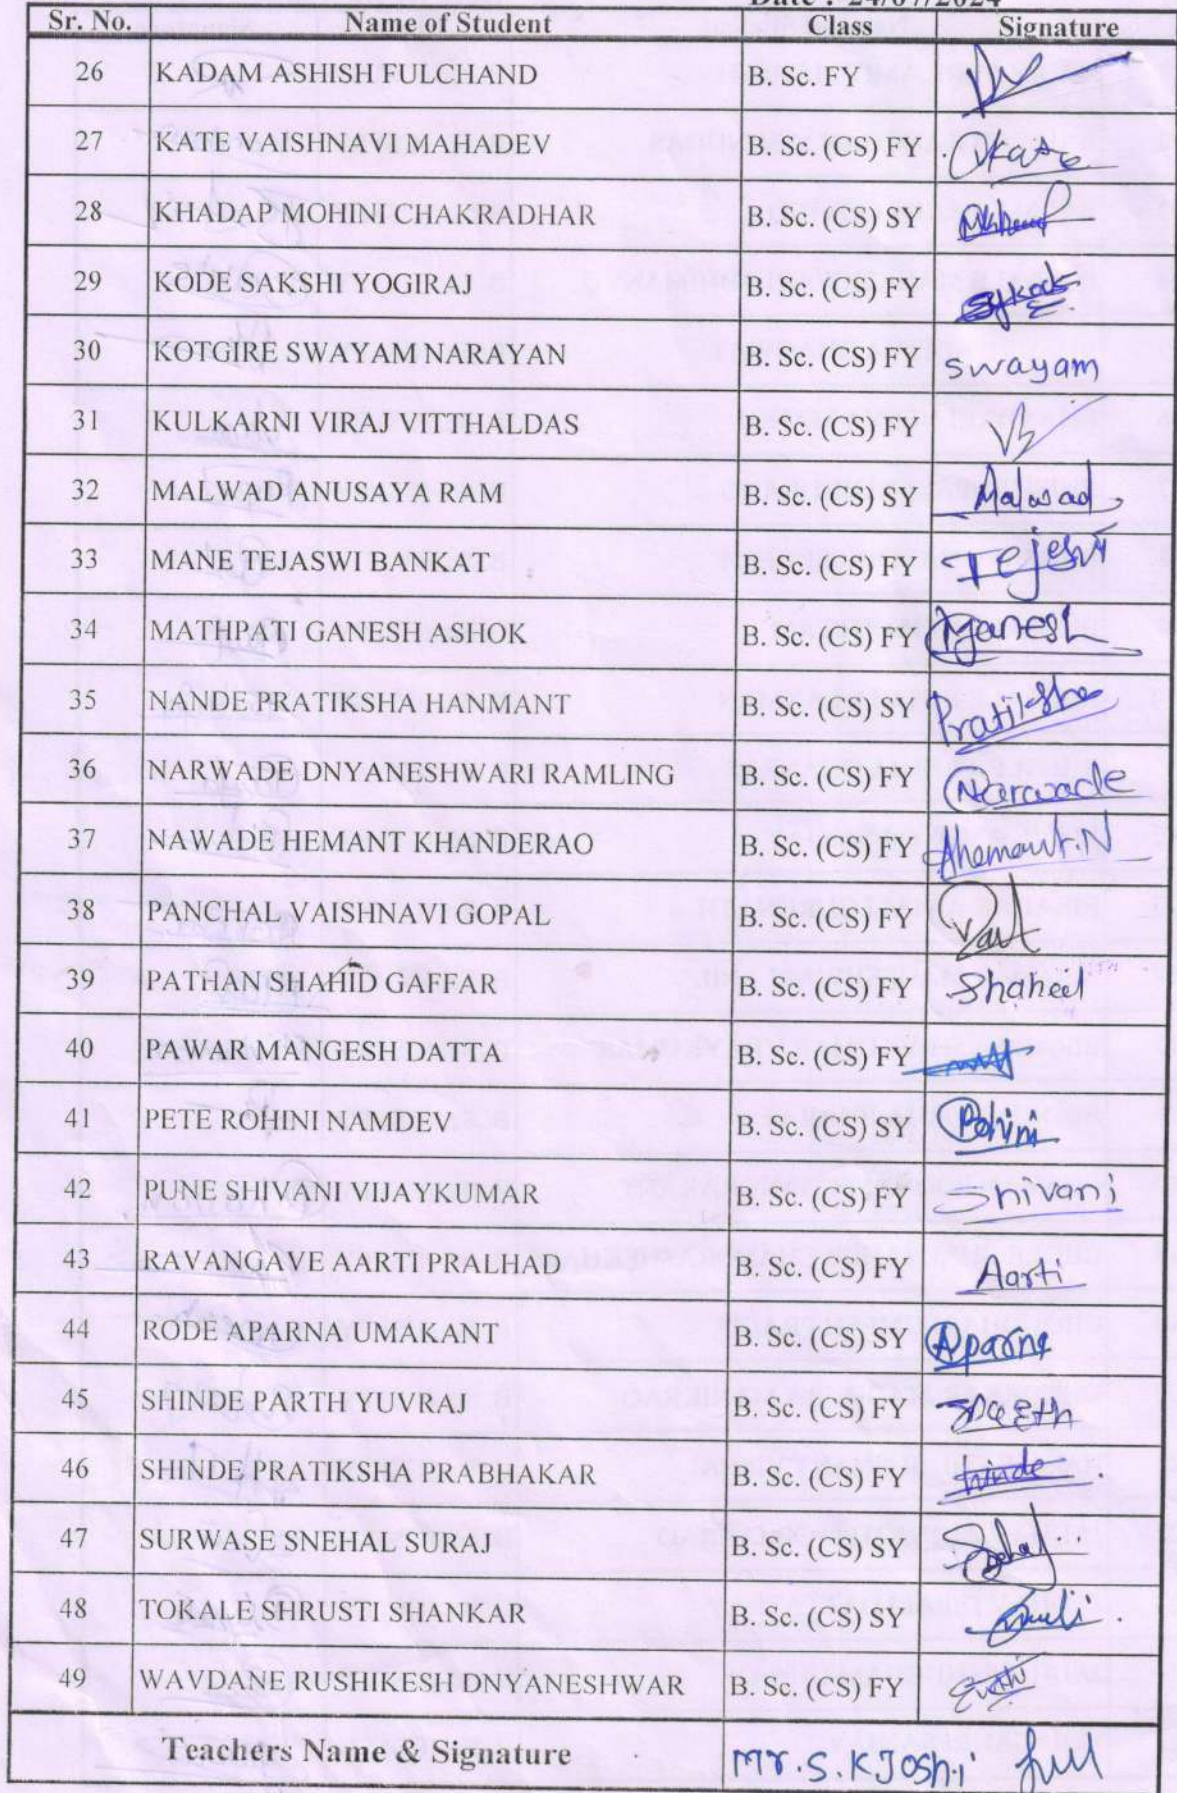 Date : 24/07/2024
Sr. No. Name of Student Class Signature
26 KADAM ASHISH FULCHAND B. Sc. FY
27 KATE VAISHNAVI MAHADEV B. Sc. (CS) FY Vkate
28 KHADAP MOHINI CHAKRADHAR B. Sc. (CS) SY
29 KODE SAKSHI YOGIRAJ B. Sc. (CS) FY sykode
30 KOTGIRE SWAYAM NARAYAN B. Sc. (CS) FY swayam
31 KULKARNI VIRAJ VITTHALDAS B. Sc. (CS) FY
32 MALWAD ANUSAYA RAM B. Sc. (CS) SY Malwad
33 MANE TEJASWI BANKAT B. Sc. (CS) FY Tejesvi
34 MATHPATI GANESH ASHOK B. Sc. (CS) FY Ganesh
35 NANDE PRATIKSHA HANMANT B. Sc. (CS) SY Pratiksha
36 NARWADE DNYANESHWARI RAMLING B. Sc. (CS) FY Narwade
37 NAWADE HEMANT KHANDERAO B. Sc. (CS) FY Ahemant.N
38 PANCHAL VAISHNAVI GOPAL B. Sc. (CS) FY
39 PATHAN SHAHID GAFFAR B. Sc. (CS) FY Shaheed
40 PAWAR MANGESH DATTA B. Sc. (CS) FY
41 PETE ROHINI NAMDEV B. Sc. (CS) SY Rohini
42 PUNE SHIVANI VIJAYKUMAR B. Sc. (CS) FY Shivani
43 RAVANGAVE AARTI PRALHAD B. Sc. (CS) FY Aarti
44 RODE APARNA UMAKANT B. Sc. (CS) SY Aparna
45 SHINDE PARTH YUVRAJ B. Sc. (CS) FY Parth
46 SHINDE PRATIKSHA PRABHAKAR B. Sc. (CS) FY hinde
47 SURWASE SNEHAL SURAJ B. Sc. (CS) SY
48 TOKALE SHRUSTI SHANKAR B. Sc. (CS) SY
49 WAVDANE RUSHIKESH DNYANESHWAR B. Sc. (CS) FY
Teachers Name & Signature Mr. S. K Joshi